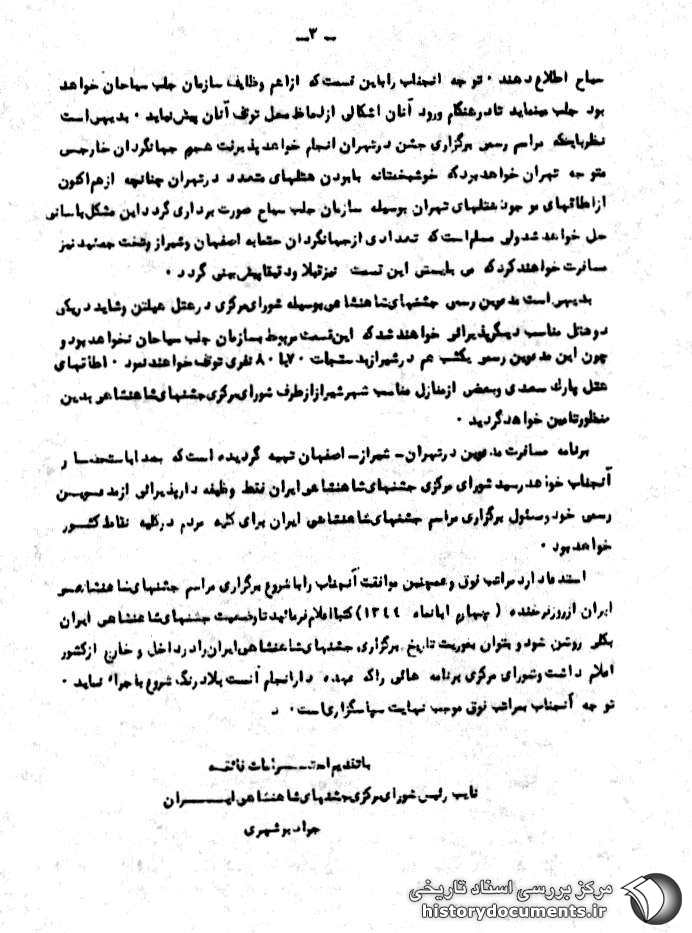 ــ ۳ ــ
سیاح اطلاع دهند ۰ توجه آنجناب را باین قسمت که ازاهم وظایف سازمان جلب سیاحان خواهد
بود جلب مینماید تادرهنگام ورود آنان اشکالی ازلحاظ محل توقف آنان پیش نیاید ۰ بدیهی است
نظرباینکه مراسم رسمی برگزاری جشن درتهران انجام خواهد پذیرفت هجوم جهانگردان خارجی
متوجه تهران خواهد بود که خوشبختانه بابودن هتلهای متعدد درتهران چنانچه ازهم اکنون
ازاطاقهای موجود هتلهای تهران بوسیله سازمان جلب سیاح صورت برداری گردد این مشکل باسانی
حل خواهد شد ولی مسلم است که تعدادی ازجهانگردان حتما به اصفهان وشیراز وتخت جمشید نیز
مسافرت خواهند کرد که می بایستی این قسمت نیز قبلا ودقیقا پیش بینی گردد ۰
بدیهی است مدعوین رسمی جشنهای شاهنشاهی بوسیله شورای مرکزی درهتل هیلتن وشاید دریکی
دوهتل مناسب دیگر پذیرائی خواهند شد که این قسمت مربوط بسازمان جلب سیاحان نخواهد بود و
چون این مدعوین رسمی یکشب هم درشیراز بدستجات ۷۰ یا ۸۰ نفری توقف خواهند نمود ۰ اطاقهای
هتل پارک سعدی وبعضی ازمنازل مناسب شهر شیراز ازطرف شورای مرکزی جشنهای شاهنشاهی بدین
منظور تامین خواهد گردید ۰
برنامه مسافرت مدعوین درتهران ــ شیراز ــ اصفهان تهیه گردیده است که بعدا باستحضار
آنجناب خواهد رسید شورای مرکزی جشنهای شاهنشاهی ایران فقط وظیفه دار پذیرائی ازمدعوین
رسمی خود ومسئول برگزاری مراسم جشنهای شاهنشاهی ایران برای کلیه مردم درکلیه نقاط کشور
خواهد بود ۰
استدعا دارد مراتب فوق وهمچنین موافقت آنجناب را با شروع برگزاری مراسم جشنهای شاهنشاهی
ایران ازروز فرخنده ( چهارم آبانماه ۱۳۴۴ ) کتبا اعلام فرمائید تا وضعیت جشنهای شاهنشاهی ایران
بکلی روشن شود و بتوان بفوریت تاریخ برگزاری جشنهای شاهنشاهی ایران را درداخل و خارج ازکشور
اعلام داشت وشورای مرکزی برنامه هائی راکه عهده دار انجام آنست بلادرنگ شروع باجراء نماید ۰
توجه آنجناب بمراتب فوق موجب نهایت سپاسگزاری است ۰ د
باتقدیم احترامات فائقه
نایب رئیس شورای مرکزی جشنهای شاهنشاهی ایران
جواد بوشهری
مرکز بررسی اسناد تاریخی
historydocuments.ir